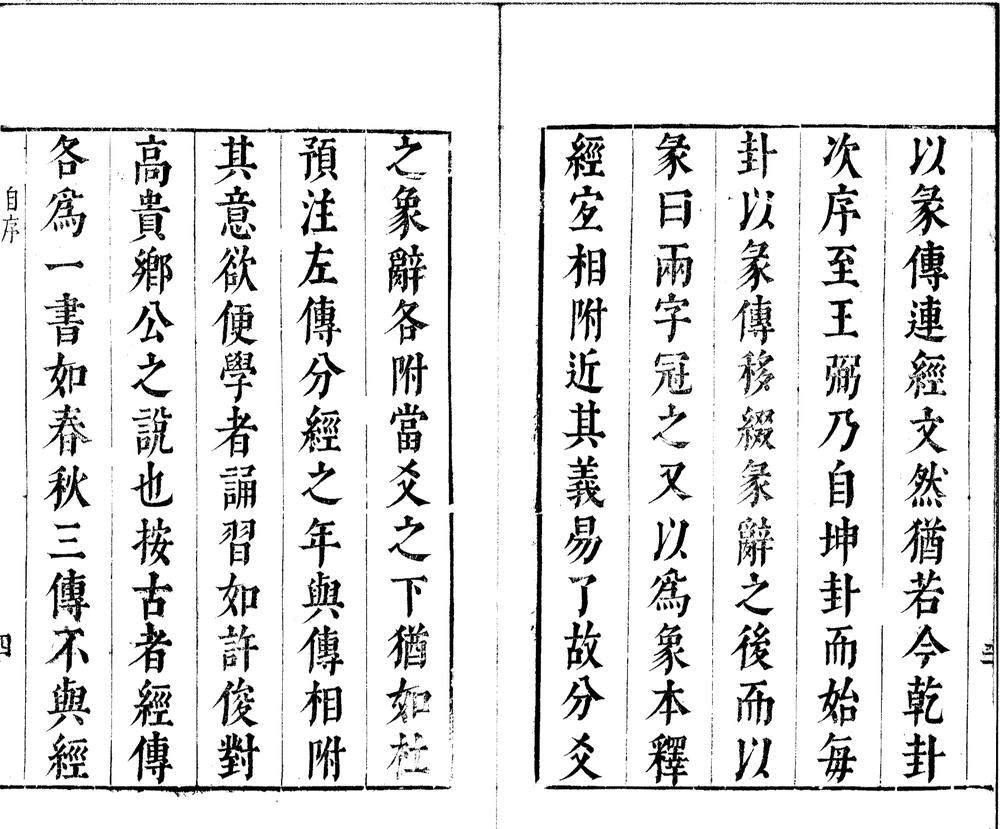 以彖傳連經文然猶若今乾卦
次序至王弼乃自坤卦而始每
卦以彖傳移綴彖辭之後而以
彖曰兩字冠之又以爲象本釋
經宜相附近其義易了故分爻
之象辭各附當爻之下猶如杜
預注左傳分經之年與傳相附
其意欲便學者誦習如許俊對
高貴鄉公之說也按古者經傳
各爲一書如春秋三傳不與經
自序
四